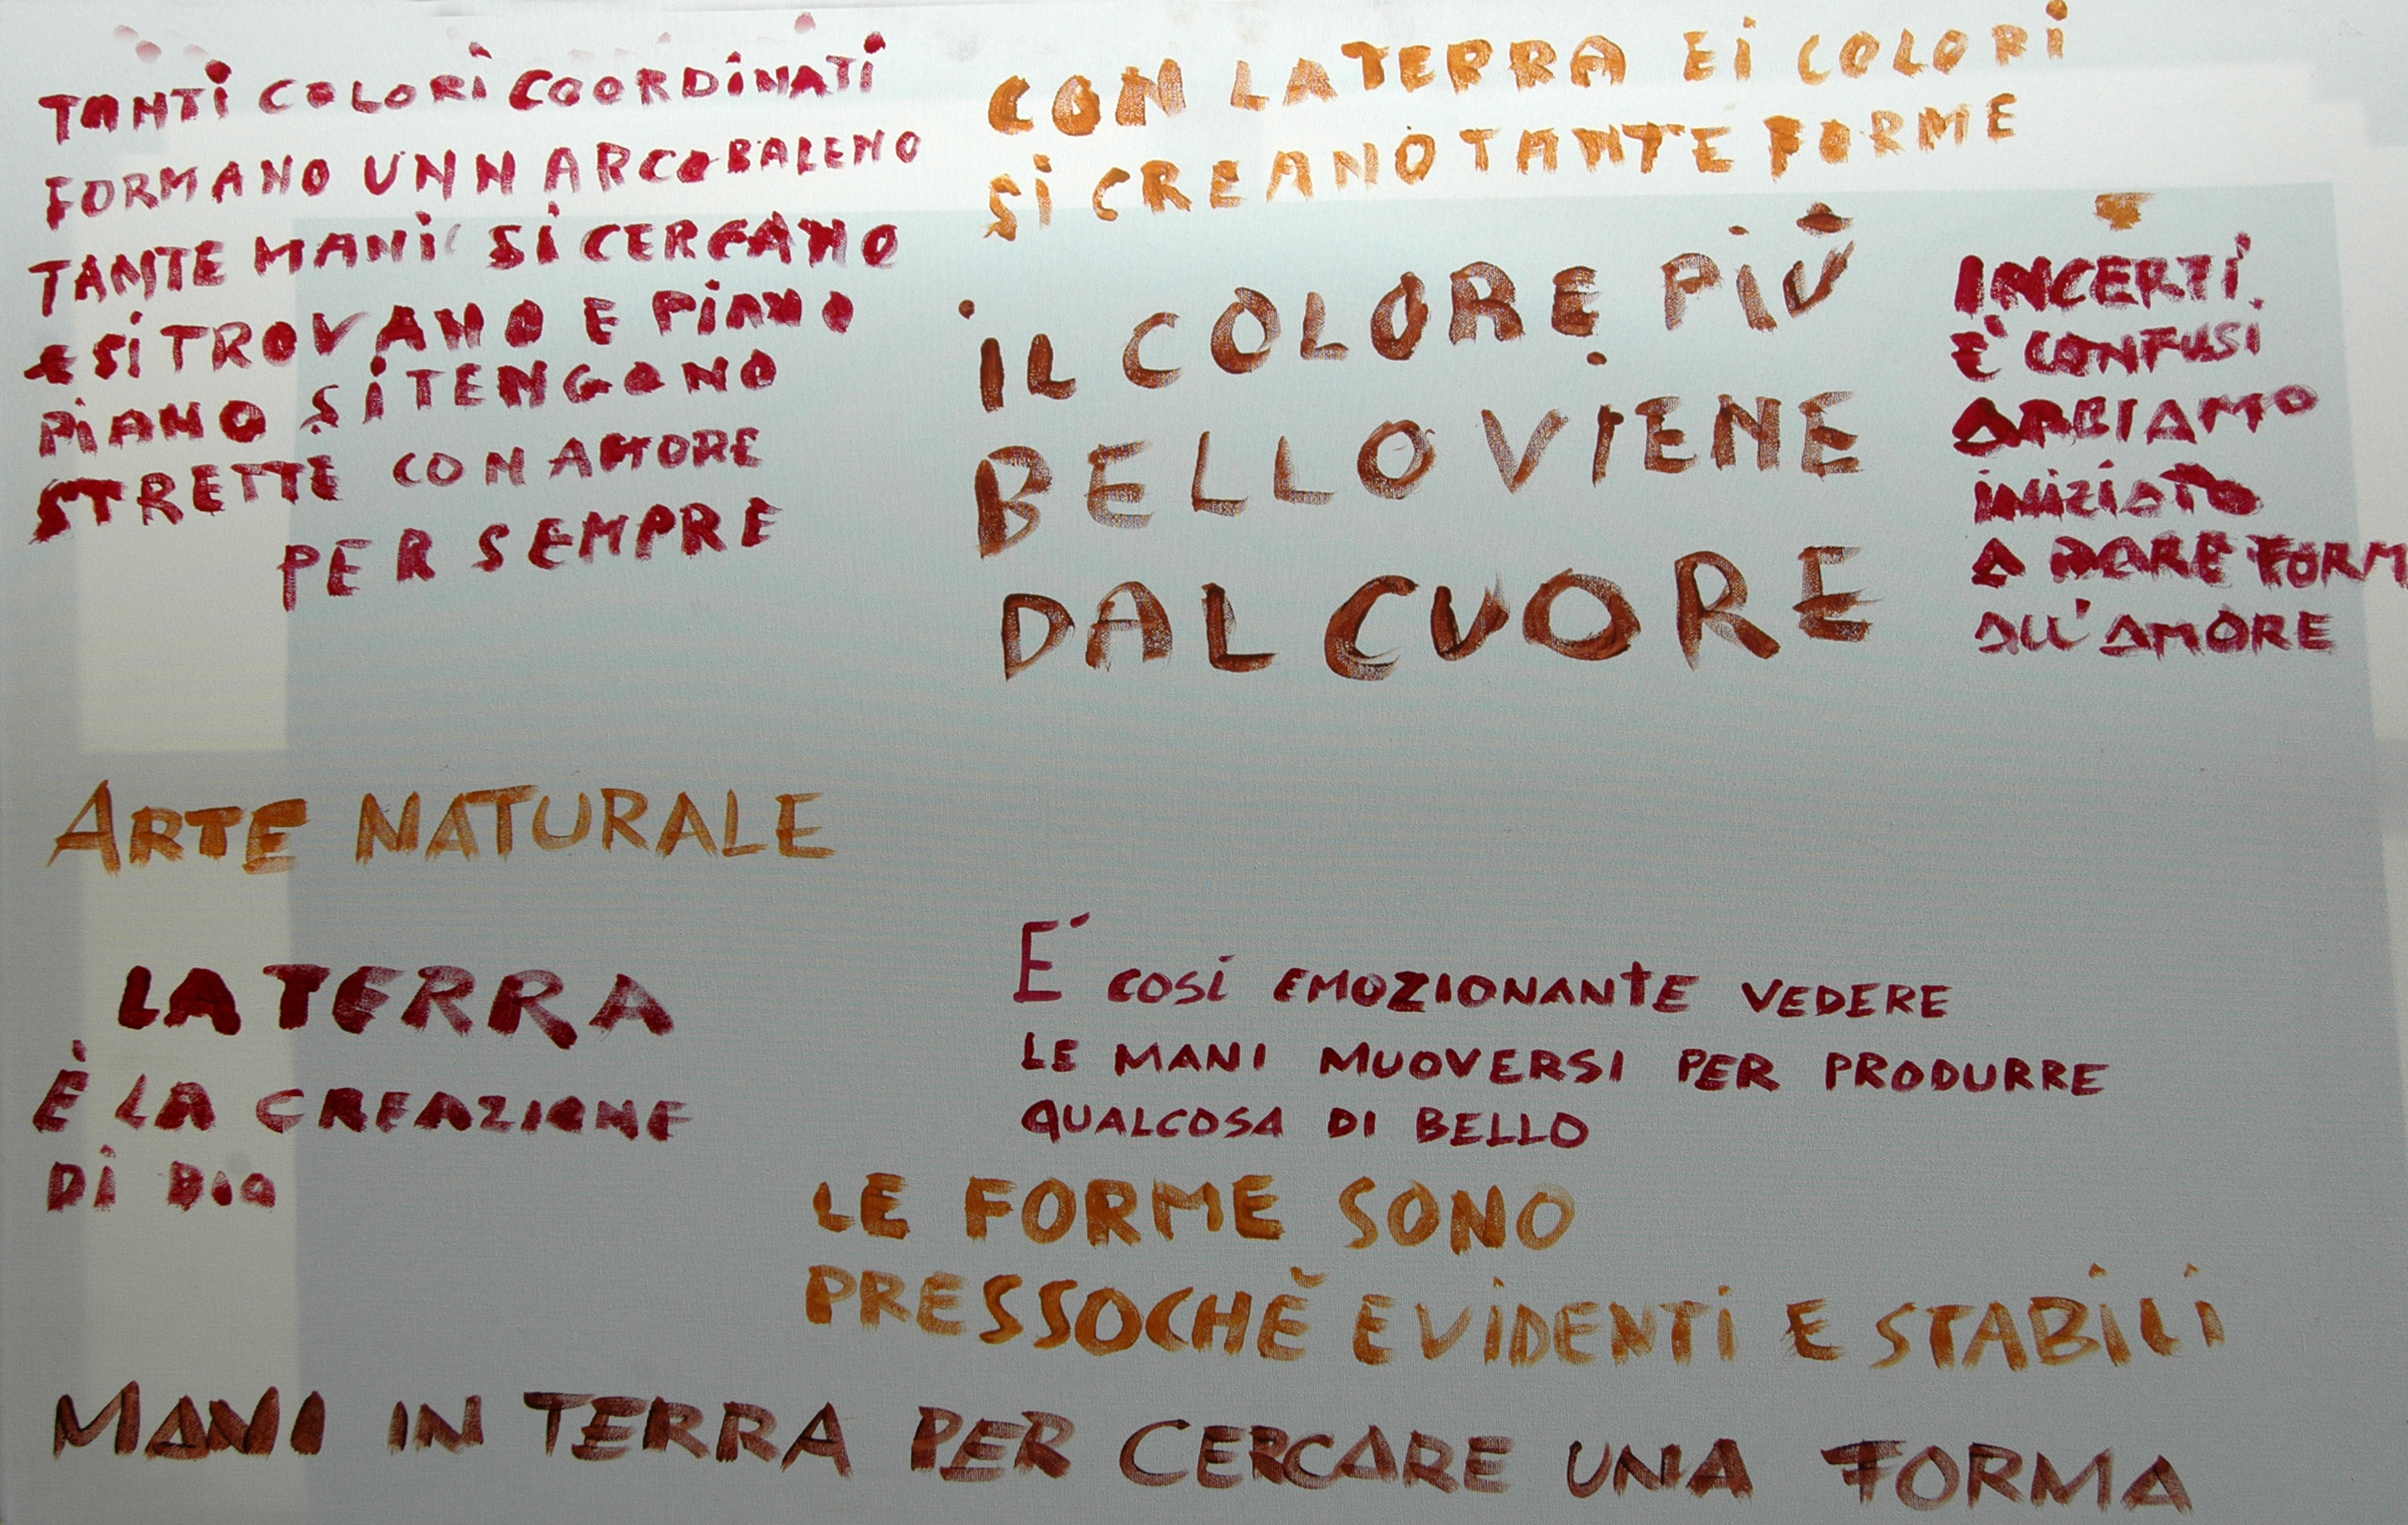 TANTI COLORI COORDINATI
FORMANO UNN ARCOBALENO
TANTE MANI SI CERCANO
E SI TROVANO E PIANO
PIANO SI TENGONO
STRETTE CON AMORE
PER SEMPRE
CON LA TERRA E I COLORI
SI CREANO TANTE FORME
IL COLORE PIÙ
BELLO VIENE
DAL CUORE
INCERTI
E' CONFUSI
ABBIAMO
INIZIATO
A DARE FORM
ALL'AMORE
ARTE NATURALE
LA TERRA
È LA CREAZIONE
DI DIO
E' COSÌ EMOZIONANTE VEDERE
LE MANI MUOVERSI PER PRODURRE
QUALCOSA DI BELLO
LE FORME SONO
PRESSOCHÈ EVIDENTI E STABILI
MANI IN TERRA PER CERCARE UNA FORMA